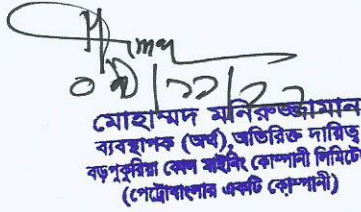 মোহাম্মদ মনিরুজ্জামান
ব্যবস্থাপক (অর্থ), অতিরিক্ত দায়িত্ব
বড়পুকুরিয়া কোল মাইনিং কোম্পানী লিমিটে
(পেট্রোবাংলার একটি কোম্পানী)